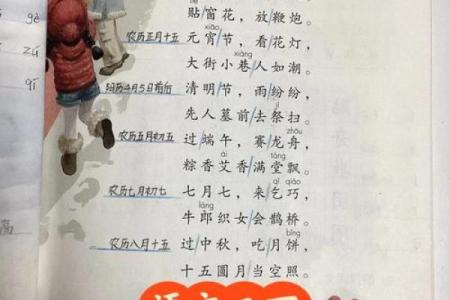 gè
zú
qī
高
贴/窗花，放/鞭炮。
xiāo
农历正月十五 元宵/节，看/花灯，
xiàng
大街小巷/人如潮。
阳历4月5日前后 清明/节，雨/纷纷，
jì
先人墓前/去祭扫。
zhōu
农历五月初五 过/端午，赛/龙舟，
ài táng
粽香艾香/满堂飘。
qǐ qiǎo
农历七月初七 七月七，来/乞巧，
láng
牛郎织女/会鹊桥。
bǐng
农历八月十五 过/中秋，吃/月饼，
十五圆月/当空照。